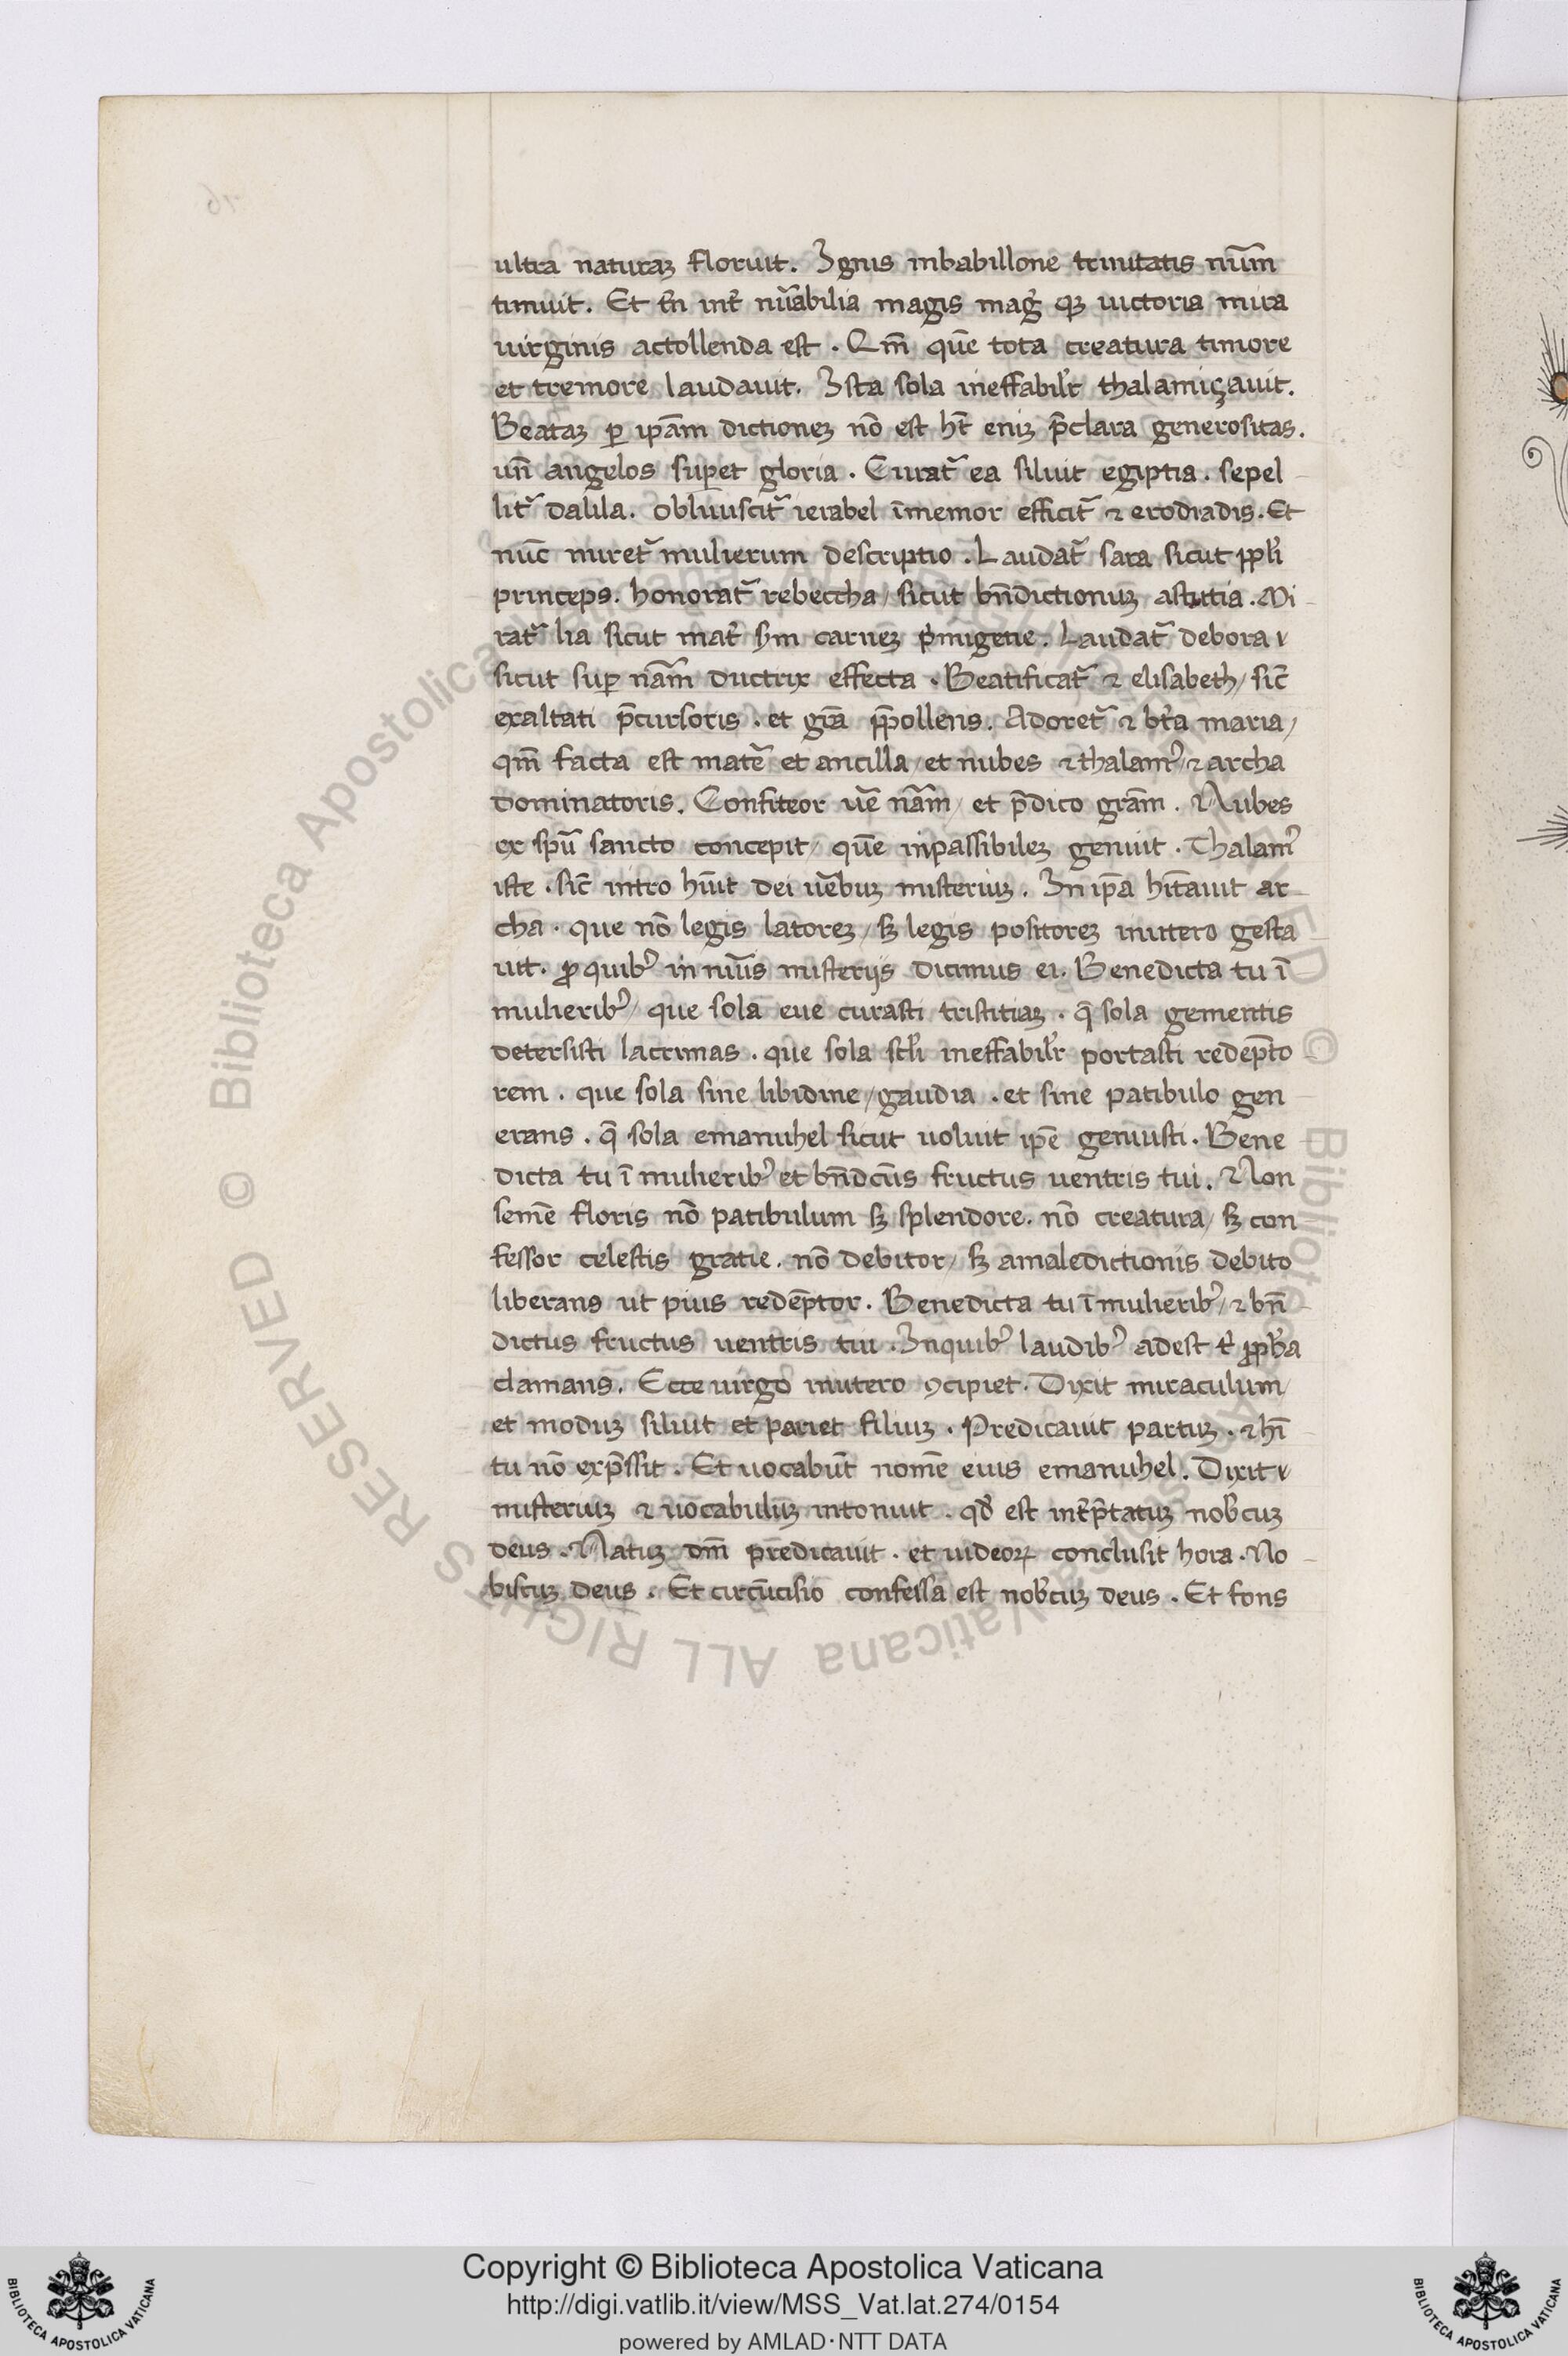 ultra naturaꝫ floruit. Ignis inbabillone trinitatis nūm
timuit. Et tn̄ int̉ mr̃abilia magis mag̉ qꝫ uictoria mira
uirginis actollenda est. Qm̄ quē tota creatura timore
et tremore laudauit. Ista sola ineffabilr̉ thalamiçauit.
Beataꝫ ꝑ ip̄am dictioneꝫ nō est ht̄ eniꝫ p̄clara generositas.
un̄ angelos suꝑet gloria. Curat᷑ ea siluit egiptia. sepel
lit᷑ dalila. obliuiscit᷑ iezabel īmemor efficit᷑ ⁊ erodiadis. Et
nūc miret᷑ mulierum descriptio. Laudat᷑ sara sicut ppl̉i
princeps. honorat᷑ rebeccha / sicut bn̄dictionuꝫ astutia. Mi
rat᷑ lia sicut mat̉ sm carneꝫ p̉migenie. Laudat᷑ debora
sicut suꝑ nām ductrix effecta. Beatificat᷑ ⁊ elisabeth / sic̄
exaltati p̄cursoris. et gr̄a p̄pollens. Adoret᷑ ⁊ bt̉a maria /
qm̄ facta est matē et ancilla / et nubes ⁊ thalamꝰ / ⁊ archa
dominatoris. Confiteor uē nām / et p̄dico grām. Nubes
ex spū sancto concepit / quē inpassibileꝫ genuit. Thalamꝰ
iste. sic̄ intro hūit dei uēbuꝫ misteriuꝫ. In ip̄a hītauit ar
cha. que nō legis latoreꝫ / sꝫ legis positoreꝫ inutero gesta
uit. ꝓ quibꝰ in nūis misterijs dicimus ei. Benedicta tu ī
mulieribꝰ / que sola eue curasti tristitiaꝫ. q̄ sola gementis
detersisti lacrimas. que sola scl̉i ineffabilr̉ portasti redēpto
rem. que sola sine libidine / gaudia. et sine patibulo gen
erans. q̄ sola emanuhel sicut uoluit ipē genuisti. Bene
dicta tu ī mulieribꝰ et bn̄dcūs fructus uentris tui. Non
semē floris nō patibulum sꝫ splendore. nō creatura / sꝫ con
fessor celestis gratie. nō debitor / sꝫ amaledictionis debito
liberans ut pius redēptor. Benedicta tu ī mulieribꝰ / ⁊ bn̄
dictus fructus uentris tui. Inquibꝰ laudibꝰ adest t̉ ꝓph̉a
clamans. Ecce uirgo inutero ꝯcipiet. Dixit miraculum /
et moduꝫ siluit et pariet filiuꝫ. Predicauit partuꝫ. ⁊ hī
tu nō exp̄ssit. Et uocabūt nomē eius emanuhel. Dixit
misteriuꝫ ⁊ uocabuluꝫ intonuit. qd̉ est int̉p̄tatuꝫ nob̉cuꝫ
deus. Natuꝫ dm̄ predicauit. et iudeoꝝ conclusit hora. No
biscuꝫ deus. Et circūcisio confessa est nob̉cuꝫ deus. Et fons
Copyright © Biblioteca Apostolica Vaticana
http://digi.vatlib.it/view/MSS_Vat.lat.274/0154
powered by AMLAD·NTT DATA
BIBLIOTECA APOSTOLICA VATICANA
BIBLIOTECA APOSTOLICA VATICANA